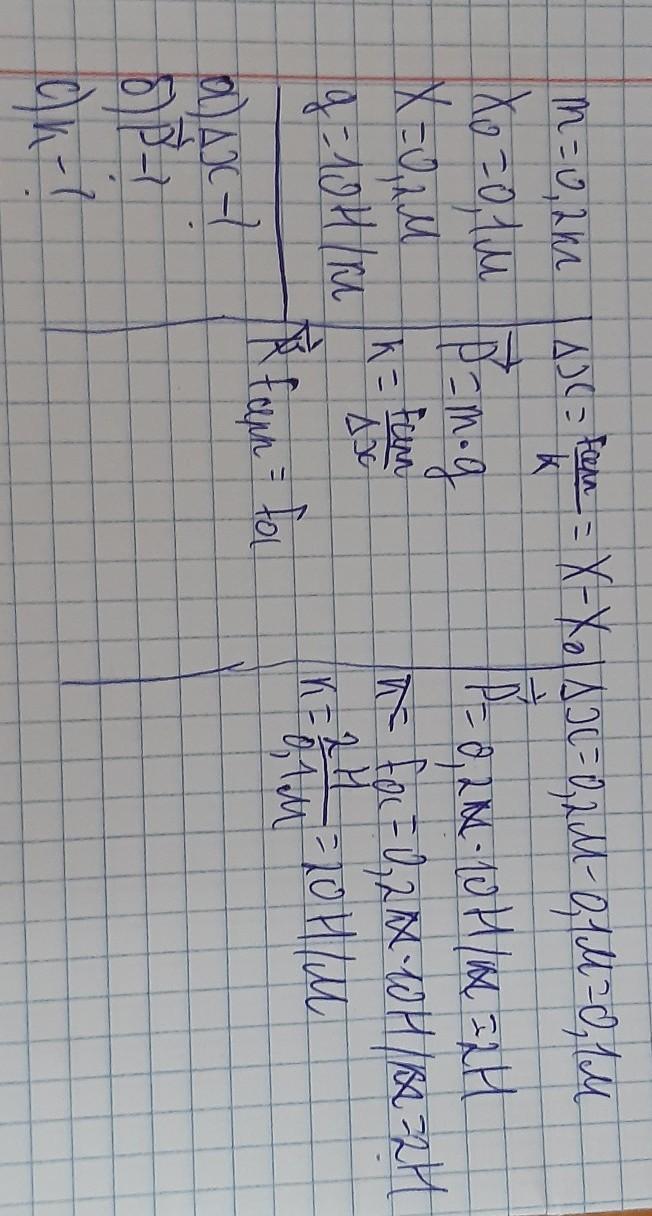 m = 0,2 кг
X₀ = 0,1 м
X = 0,2 м
g = 10 Н/кг
а) Δx - ?
б) P - ?
с) k - ?
Δx = Fупр/k = X - X₀
P = m · g
k = Fупр/Δx
Fупр = Fа
Δx = 0,2 м - 0,1 м = 0,1 м
P = 0,2 кг · 10 Н/кг = 2 Н
Fа = 0,2 кг · 10 Н/кг = 2 Н
k = 2 Н/0,1 м = 20 Н/м